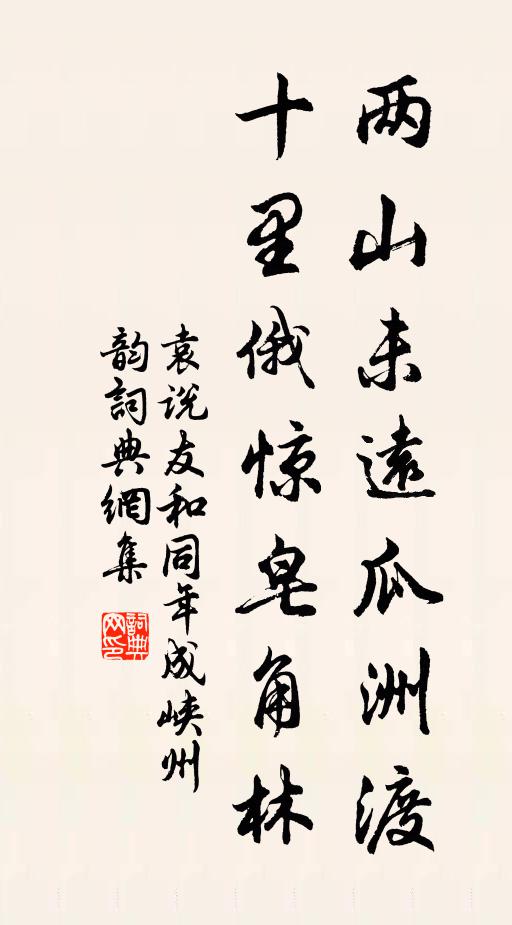 两山未遠瓜洲渡
十里俄惊皂角林
袁说友和同年成峡州
韵詞典網集
詞典网印